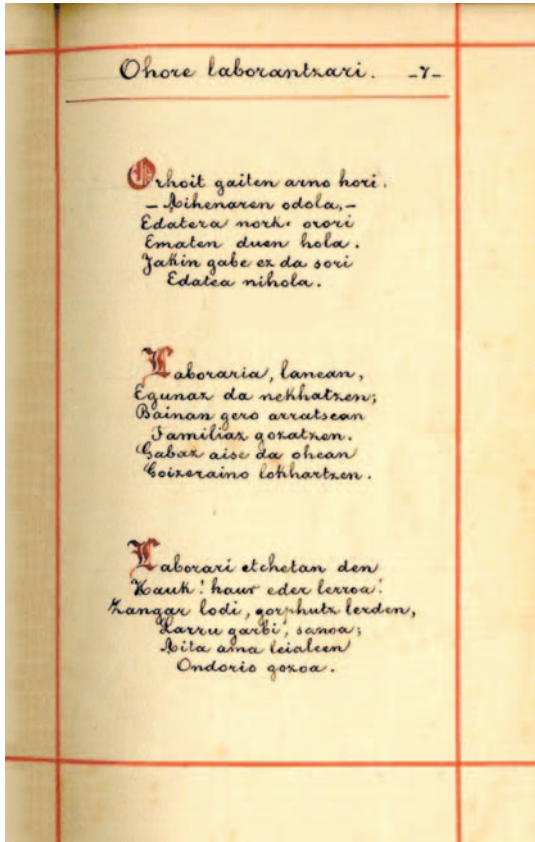 Ohore laborantzari. -7-
Orhoit gaiten arno hori.
- Aihenaren odola, -
Edatera nork. orori
Ematen duen hola.
Jakin gabe ez da sori
Edatea nihola.
Laboraria, lanean,
Egunaz da nekhatzen;
Bainan gero arratsean
Familiaz gozatzen.
Gabaz aise da ohean
Goizeraino lokhartzen.
Laborari etchetan den
Hauk! haur eder lerroa!
Zangar lodi, gorphutz lerden,
Larru garbi, sanoa;
Aita ama leialeen
Ondorio gozoa.